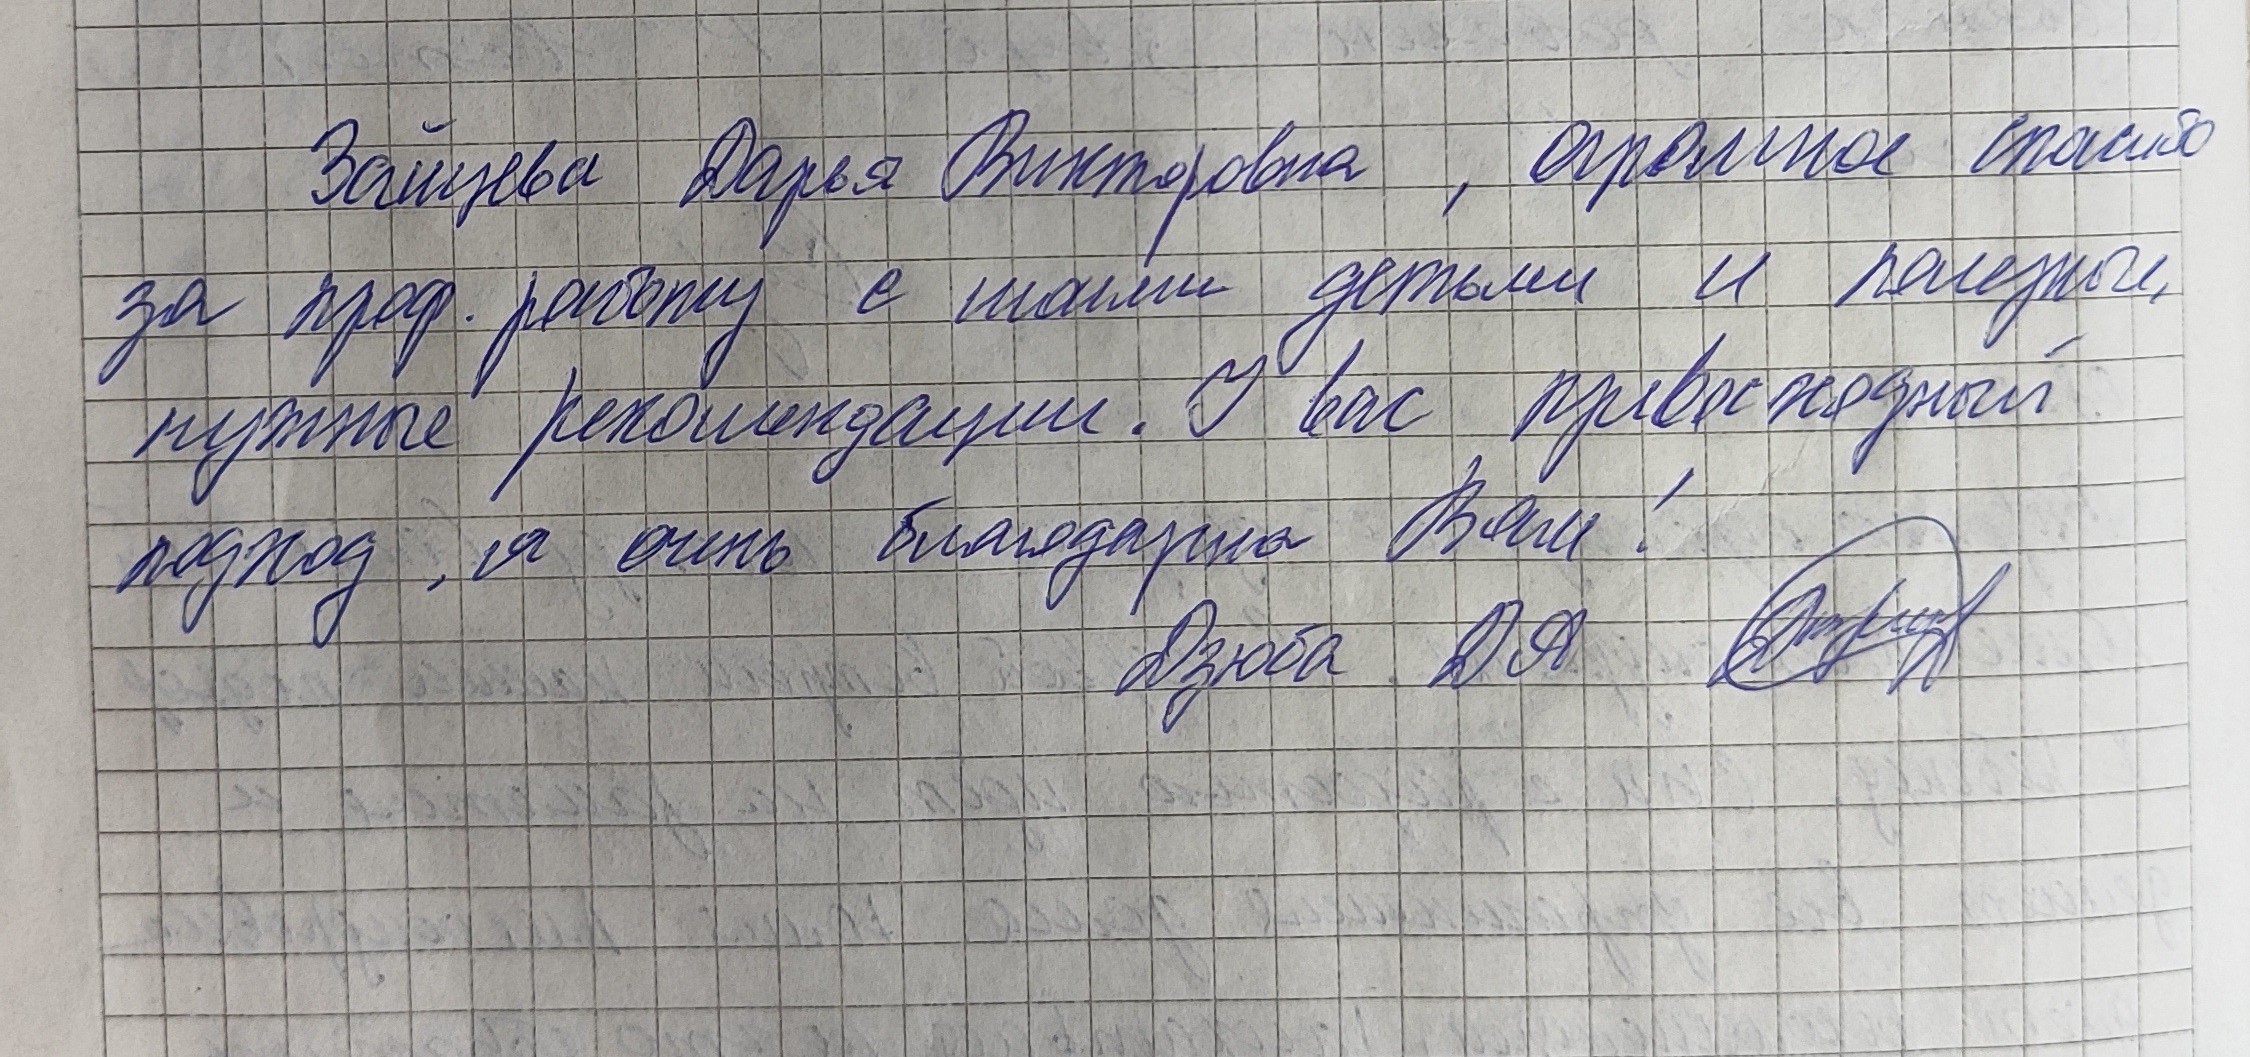 Зайцева Дарья Викторовна, огромное спасибо
за проф. работу с нашими детьми и полезные,
нужные рекомендации. У вас превосходный
подход, я очень благодарна Вам!
Дзюба ДА